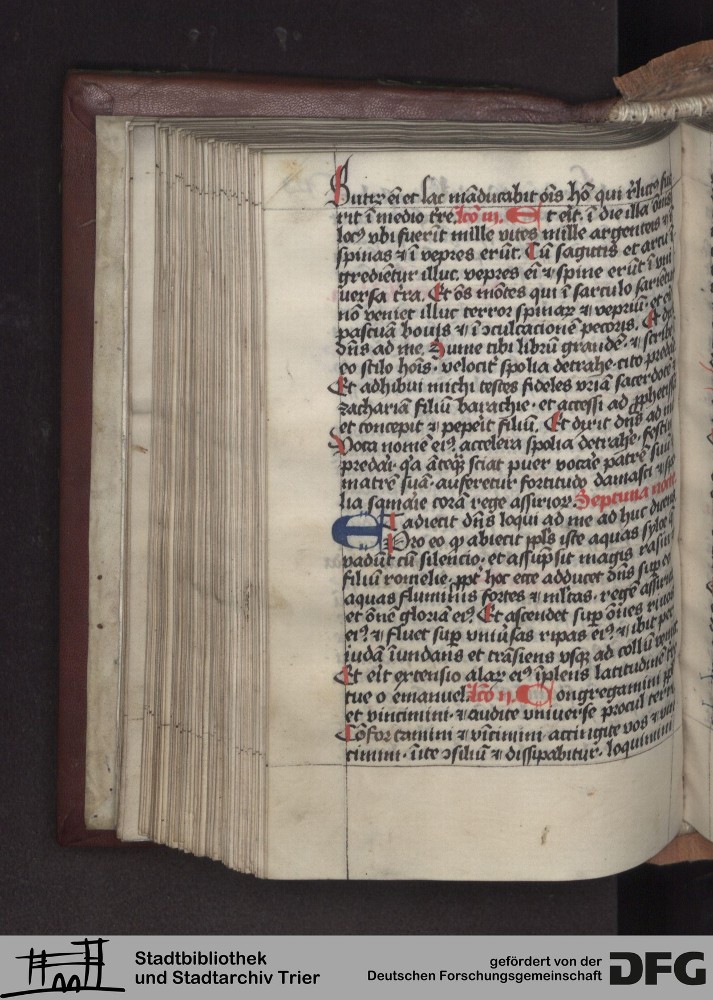 Butir eī et lac māducabit oīs hō qui r̄lictꝰ fuē
rit ī medio t̄re. lcō iii. Et eīt. ī die illa oīnis
locꝰ vbi fuerit mille vites mille argenteis ⁊ ī
spinas ⁊ ī vepres erūt. Cū sagittis et arcu ī
gredietur illuc. vepres eī ⁊ spine erūt ī vni
uersa t̄ra. Et oēs mōtes qui ī sarculo sarietur
nō veniet illuc terror spinaꝝ ⁊ vepriū. et eīt
pascua bouis ⁊ ī ↄculcacionē pecoris. Et dix
dn̄s ad me. Sume tibi librū grandē. ⁊ scribe
eo stilo hoīs. velocit̄ spolia detrahe. cito predaī
Et adhibui michi testes fideles vriā sacerdotē ⁊
zachariā filiū barachie. et accessi ad ꝓphetissā
et concepit ⁊ peperit filiū. Et dixit dn̄s ad me
Voca nomē eiꝰ accelera spolia detrahe. festīa
predaī. q̄a āteq̄ȝ sciat puer vocare patrē suū ⁊
matrē suā. auferetur fortitudo damasci ⁊ spo
lia samaīe corā rege assirioꝝ. Septima nocte.
Et adiecit dn̄s loqui ad me ad huc dicens
Pro eo ꝙ abiecit ppl̄s iste aquas syloe q̄
vadūt cū silencio. et assūpsit magis rasin ⁊
filiū romelie. ꝓpt̄ hoc ecce adducet dn̄s suꝑ eos
aquas fluminis fortes ⁊ mltas. regē assirioꝝ
et oēnē gloriā eiꝰ. Et ascendet suꝑ oēs riuos
eiꝰ. ⁊ fluet suꝑ vniu̾sas ripas eiꝰ. ⁊ ibit per
iudā īundans et trāsiens vsqȝ ad collū veniet
Et eīt extensio alaꝝ eiꝰ īplens latitudinē t̄re
tue o emanuel. lcō ii. Congregamini ppl̄i
et vincimini. ⁊ audite vniuerse procul terre
Cōfortamini ⁊ vīcimini accingite vos ⁊ vin
cimini. īite ↄsiliū ⁊ dissipabitur. loquimini
Stadtbibliothek
und Stadtarchiv Trier
gefördert von der
Deutschen Forschungsgemeinschaft
DFG